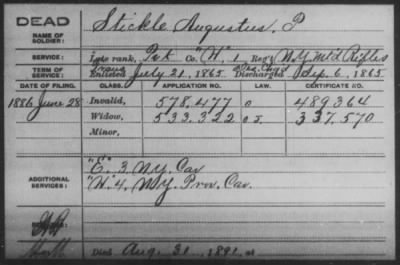 DEAD
NAME OF SOLDIER: Stickle Augustus, P
SERVICE: Late rank, Pvt Co. "H". 1, Reg't N.Y. Mt'd Rifles
TERM OF SERVICE: Trans Enlisted July 21, 1865 Discharged Sep. 6, 1865
DATE OF FILING. CLASS. APPLICATION NO. LAW. CERTIFICATE NO.
1886 June 28 Invalid, 578,477 0 489364
Widow, 533,322 05. 337,570
Minor,
ADDITIONAL SERVICES: "E", 3, N.Y. Cav
"H". 4, N.Y. Prov. Cav.
Died Aug. 31, 1891, at